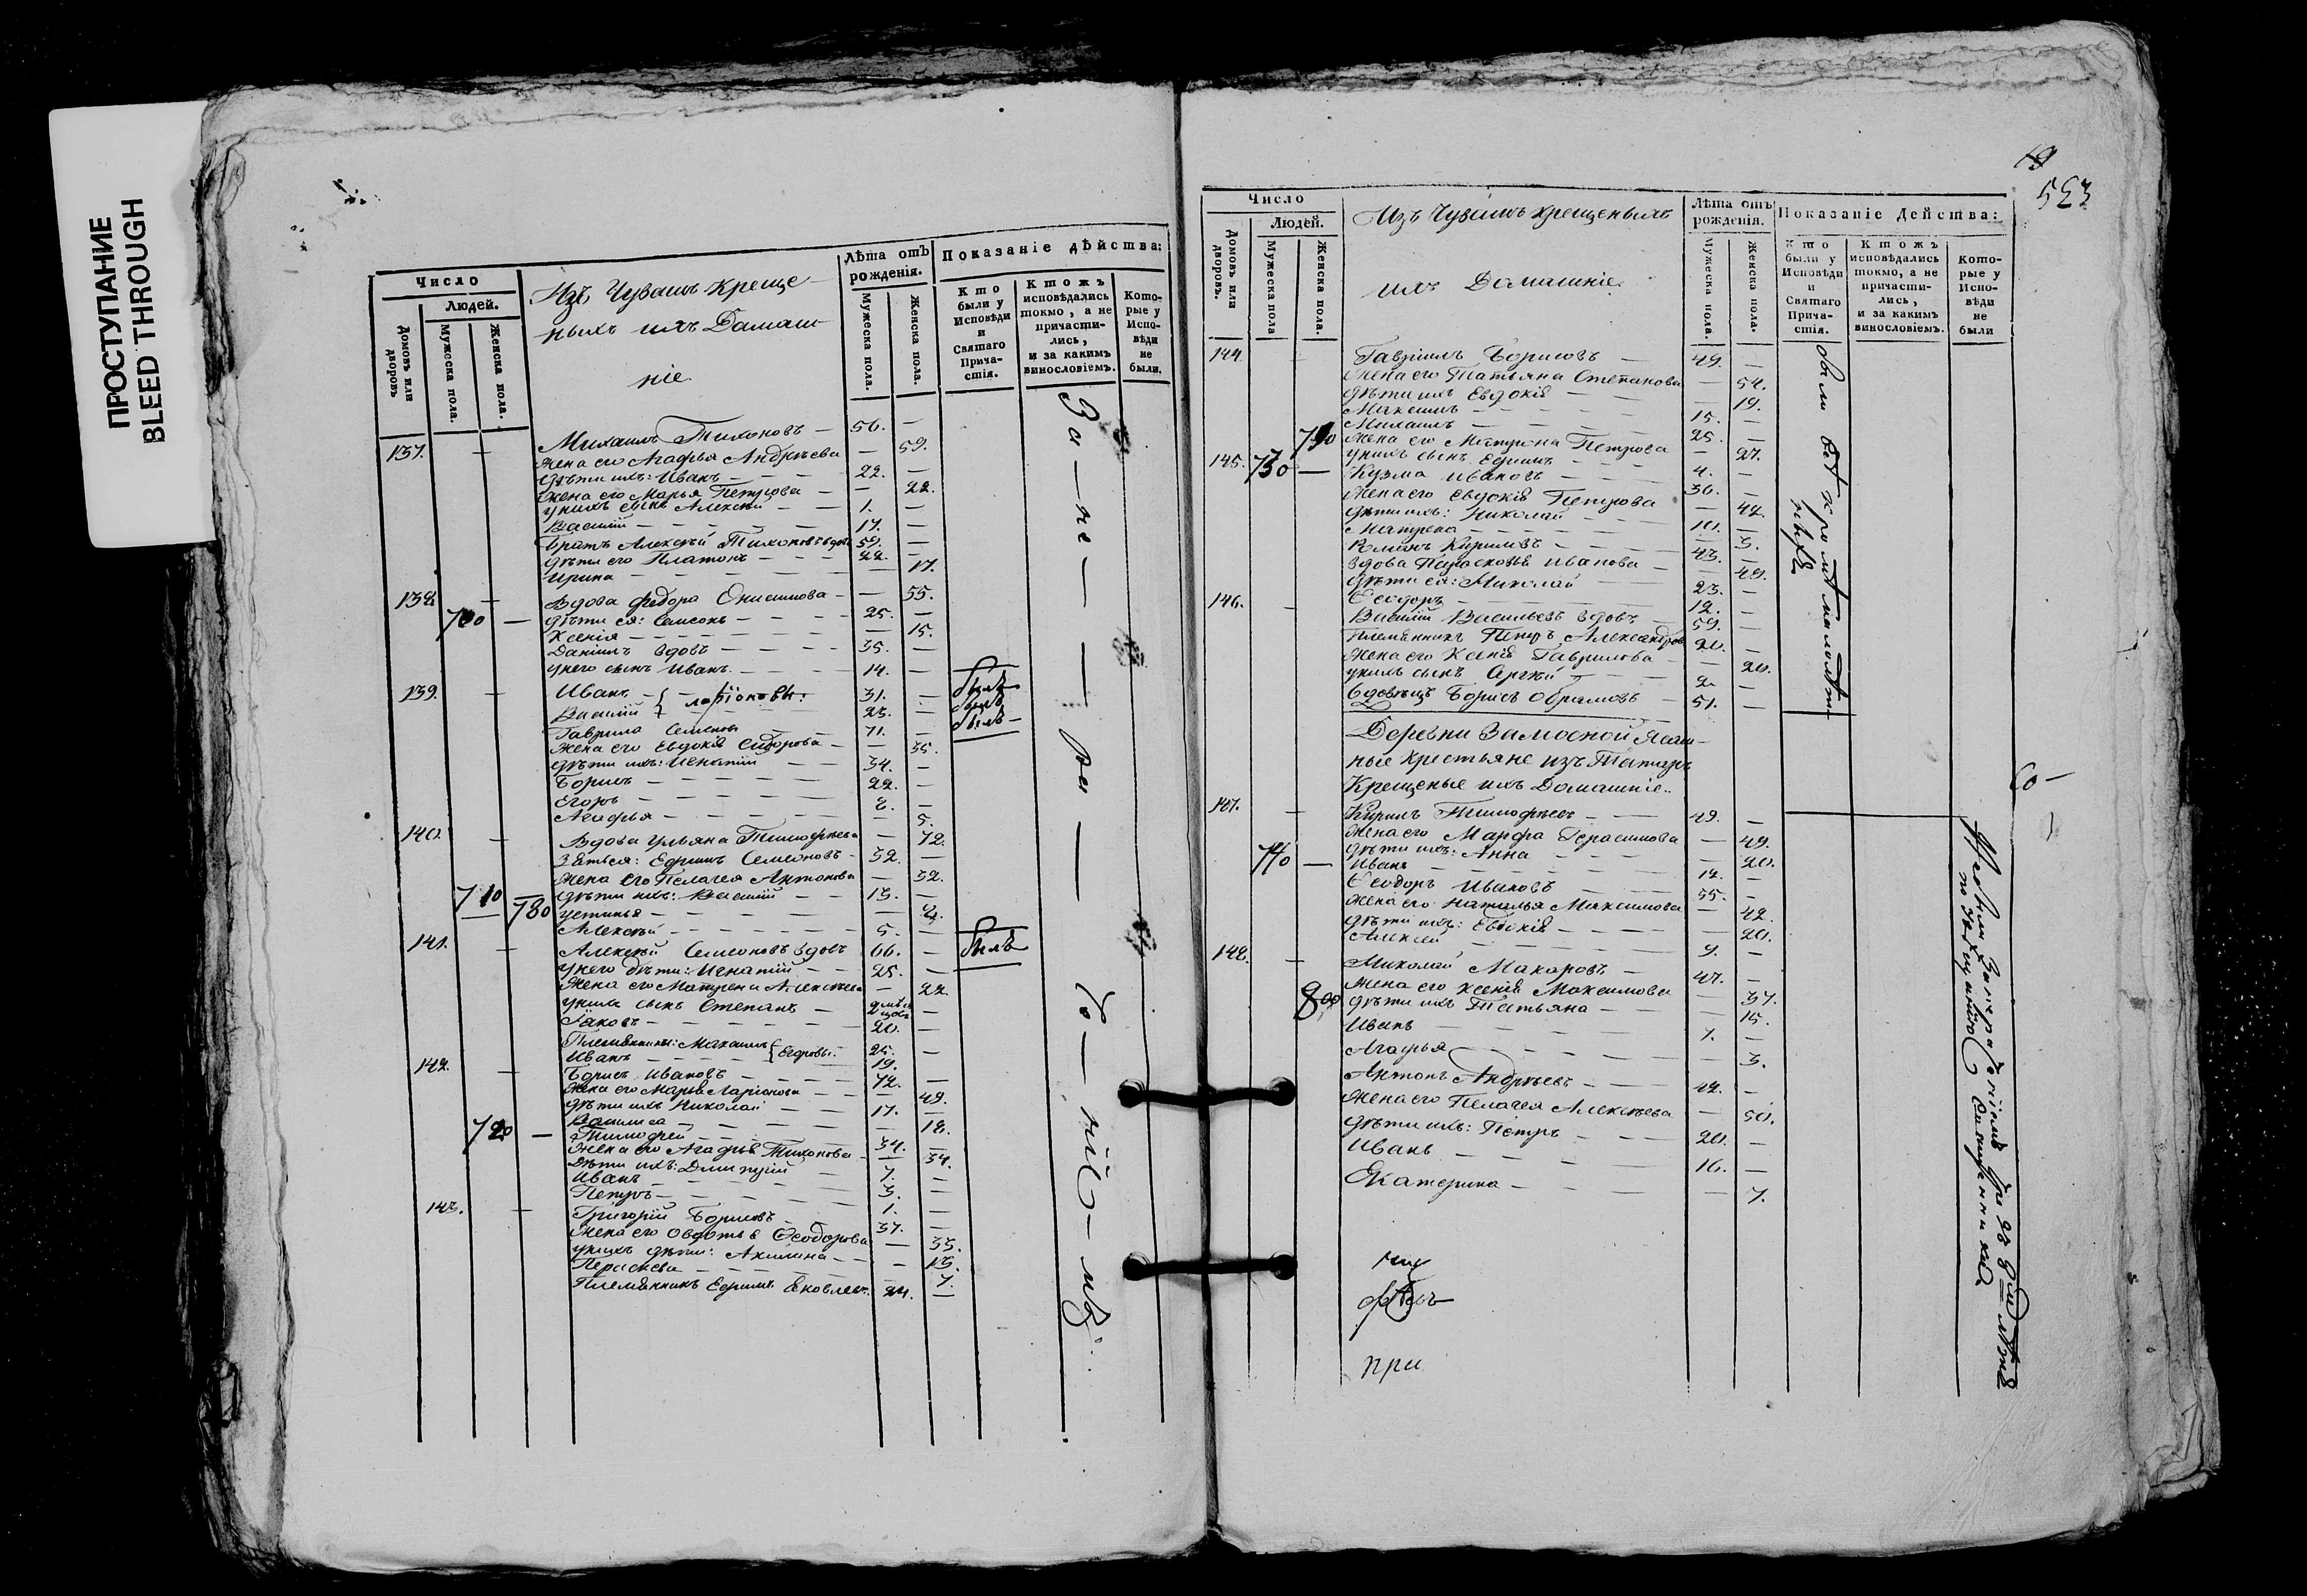 ПРОСТУПАНИЕ
BLEED THROUGH
Число
Людей.
Домовъ или дворовъ
Мужеска пола.
Женска пола.
Изъ Чувашъ Креще-
ныхъ ихъ Домаш-
ніе
Лѣта отъ рожденія.
Мужеска пола.
Женска пола.
Показаніе дѣйства:
Кто были у Исповѣди и Святаго Прича-стія.
Ктожъ исповѣдались токмо, а не причасти-лись, и за какимъ винословіемъ.
Кото-рые у Испо-вѣди не были.
137. Михаилъ Тихоновъ 56.
Жена его Агафья Андреева 59.
Дѣти ихъ: Иванъ 22.
Жена его Марья Петрова 22.
у нихъ сынъ Алексѣй 1.
Василій 17.
Братъ Алексѣй Тихоновъ вдовъ 59.
Дѣти его Платонъ 22.
Ирина 17.
138. Вдова Федора Онисимова 55.
700 Дѣти ея: Семенъ 25.
Ксенія 15.
Даніилъ вдовъ 35.
у него сынъ Иванъ 14.
139. Иванъ 31. былъ
Ларіоновы:
Василій 23. былъ
Гаврила Семеновъ 71. былъ
Жена его Евдокія Сидорова 55.
Дѣти ихъ: Игнатій 34.
Борисъ 22.
Егоръ 8.
Агафья 5.
140. Вдова Ульяна Тимофѣева 72.
Зять ея: Ефимъ Семеновъ 32.
Жена его Пелагея Антонова 32.
710 Дѣти ихъ: Василій 13.
780 Устинья
Алексѣй 5.
141. Алексѣй Семеновъ вдовъ 66. былъ
у него дѣти: Игнатій 25.
Жена его Матрена Алексѣева 22.
у нихъ сынъ Степанъ
Іаковъ 20.
Племянники: Максимъ 25.
Егоровы.
Иванъ 19.
142. Борисъ Ивановъ 72.
Жена его Марья Ларіонова 49.
Дѣти ихъ Николай 17.
Василиса 18.
720 Тимофей 34.
Жена его Агафья Тихонова 34.
Дѣти ихъ: Димитрій 7.
Иванъ 3.
Петръ 1.
143. Григорій Борисовъ 37.
Жена его Овдотья Ѳеодорова 33.
у нихъ дѣти: Акилина 13.
Парасковья 7.
Племянникъ Ефимъ Яковлевъ 24.
19
523
Число
Людей.
Домовъ или дворовъ.
Мужеска пола
Женска пола.
Изъ Чувашъ Крещеныхъ
ихъ Домашніе.
Лѣта отъ рожденія.
Мужеска пола.
Женска пола.
Показаніе Дѣйства:
Кто были у Исповѣди и Святаго Прича-стія.
Ктожъ исповѣдались токмо, а не причасти-лись, и за какимъ винословіемъ.
Кото-рые у Испо-вѣди не были
144. Гавріилъ Борисовъ 49.
Жена его Татьяна Степанова 54.
Дѣти ихъ Евдокія 19.
Максимъ 15.
Михаилъ 25.
790 Жена его Матрена Петрова 27.
у нихъ сынъ Ефимъ 4.
145. 730 Кузма Ивановъ 36.
Жена его Евдокія Петрова 42.
Дѣти ихъ: Николай 10.
Матрена 3.
Романъ Кириловъ 43.
Вдова Парасковья Иванова 49.
Дѣти ея: Миколай 23.
Ѳеодоръ 12.
146. Василій Васильевъ вдовъ 59.
Племянникъ Петръ Александровъ 20.
Жена его Ксенія Гаврилова 20.
у нихъ сынъ Сергѣй 2.
Вдовецъ Борисъ Обрамовъ 51.
были всѣ кромѣ малолѣт-
нихъ
Деревни Замосной Ясаш-
ные Крестьяне изъ Татаръ
Крещеные ихъ Домашніе..
147. Кирилъ Тимофѣевъ 49.
Жена его Марфа Герасимова 49.
Дѣти ихъ: Анна 20.
740 Иванъ 12.
Ѳеодоръ Ивановъ 55.
Жена его Наталья Максимова 42.
Дѣти ихъ: Евдокія 20.
Алексей 9.
148. Миколай Макаровъ 47.
Жена его Ксенія Максимова 37.
800 Дѣти ихъ Татьяна 15.
Иванъ 7.
Агафья 3.
Антонъ Андреевъ 42.
Жена его Пелагея Алексѣева 50.
Дѣти ихъ: Петръ 20.
Иванъ 16.
Екатерина 7.
при